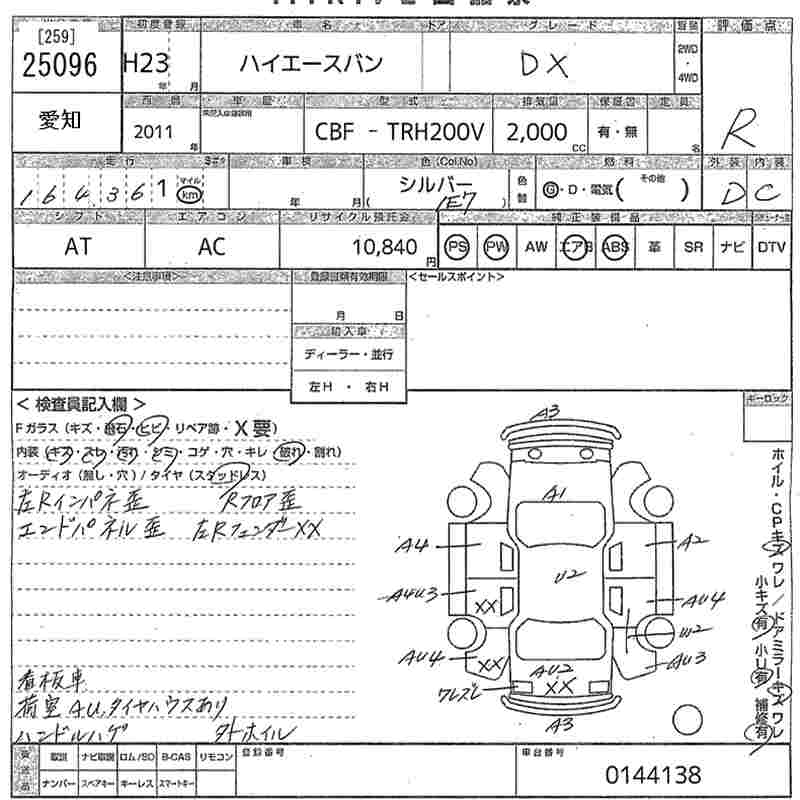 [259]
25096
初度登録 車名 ドア グレード 評価点
H23 年 月 ハイエースバン DX 2WD・4WD R
愛知
西暦 車歴 型式 排気量 保証書 定員
2011 年 CBF - TRH200V 2,000 CC 有・無 名
走行 車検 色(Col.No) 燃料 外装 内装
164,361 マイル km 年 月 シルバー (1E7) 色替 G・D・電気( その他 ) D C
シフト エアコン リサイクル預託金 純正装備品
AT AC 10,840円 PS PW AW エアB ABS 革 SR ナビ DTV
<注意事項> 登録書類有効期限 <セールスポイント>
月 日
輸入車
ディーラー・並行
左H・右H
<検査員記入欄> キーロック
Fガラス(キズ・飛石・ヒビ・リペア跡・X要)
内装(キズ・スレ・汚れ・シミ・コゲ・穴・キレ・破れ・割れ)
オーディオ(無し・穴)/タイヤ(スタッドレス)
左Rインパネ歪 Rフロア歪
エンドパネル歪 左Rフェンダー××
看板車
荷室AU,タイヤハウスあり
ハンドルハゲ 外ホイル
A3
A1
A4
A2
U2
AU3
XX
AU4
W2
AU4
XX
AU3
AU2
ワレズレ XX
A3
ホイル・CPキズワレ/ドアミラーキズワレ
小キズ有 小U有 補修有
取説 ナビ取説 ロム/SD B-CAS リモコン 登録番号 車台番号
ナンバー スペアキー キーレス スマートキー 0144138